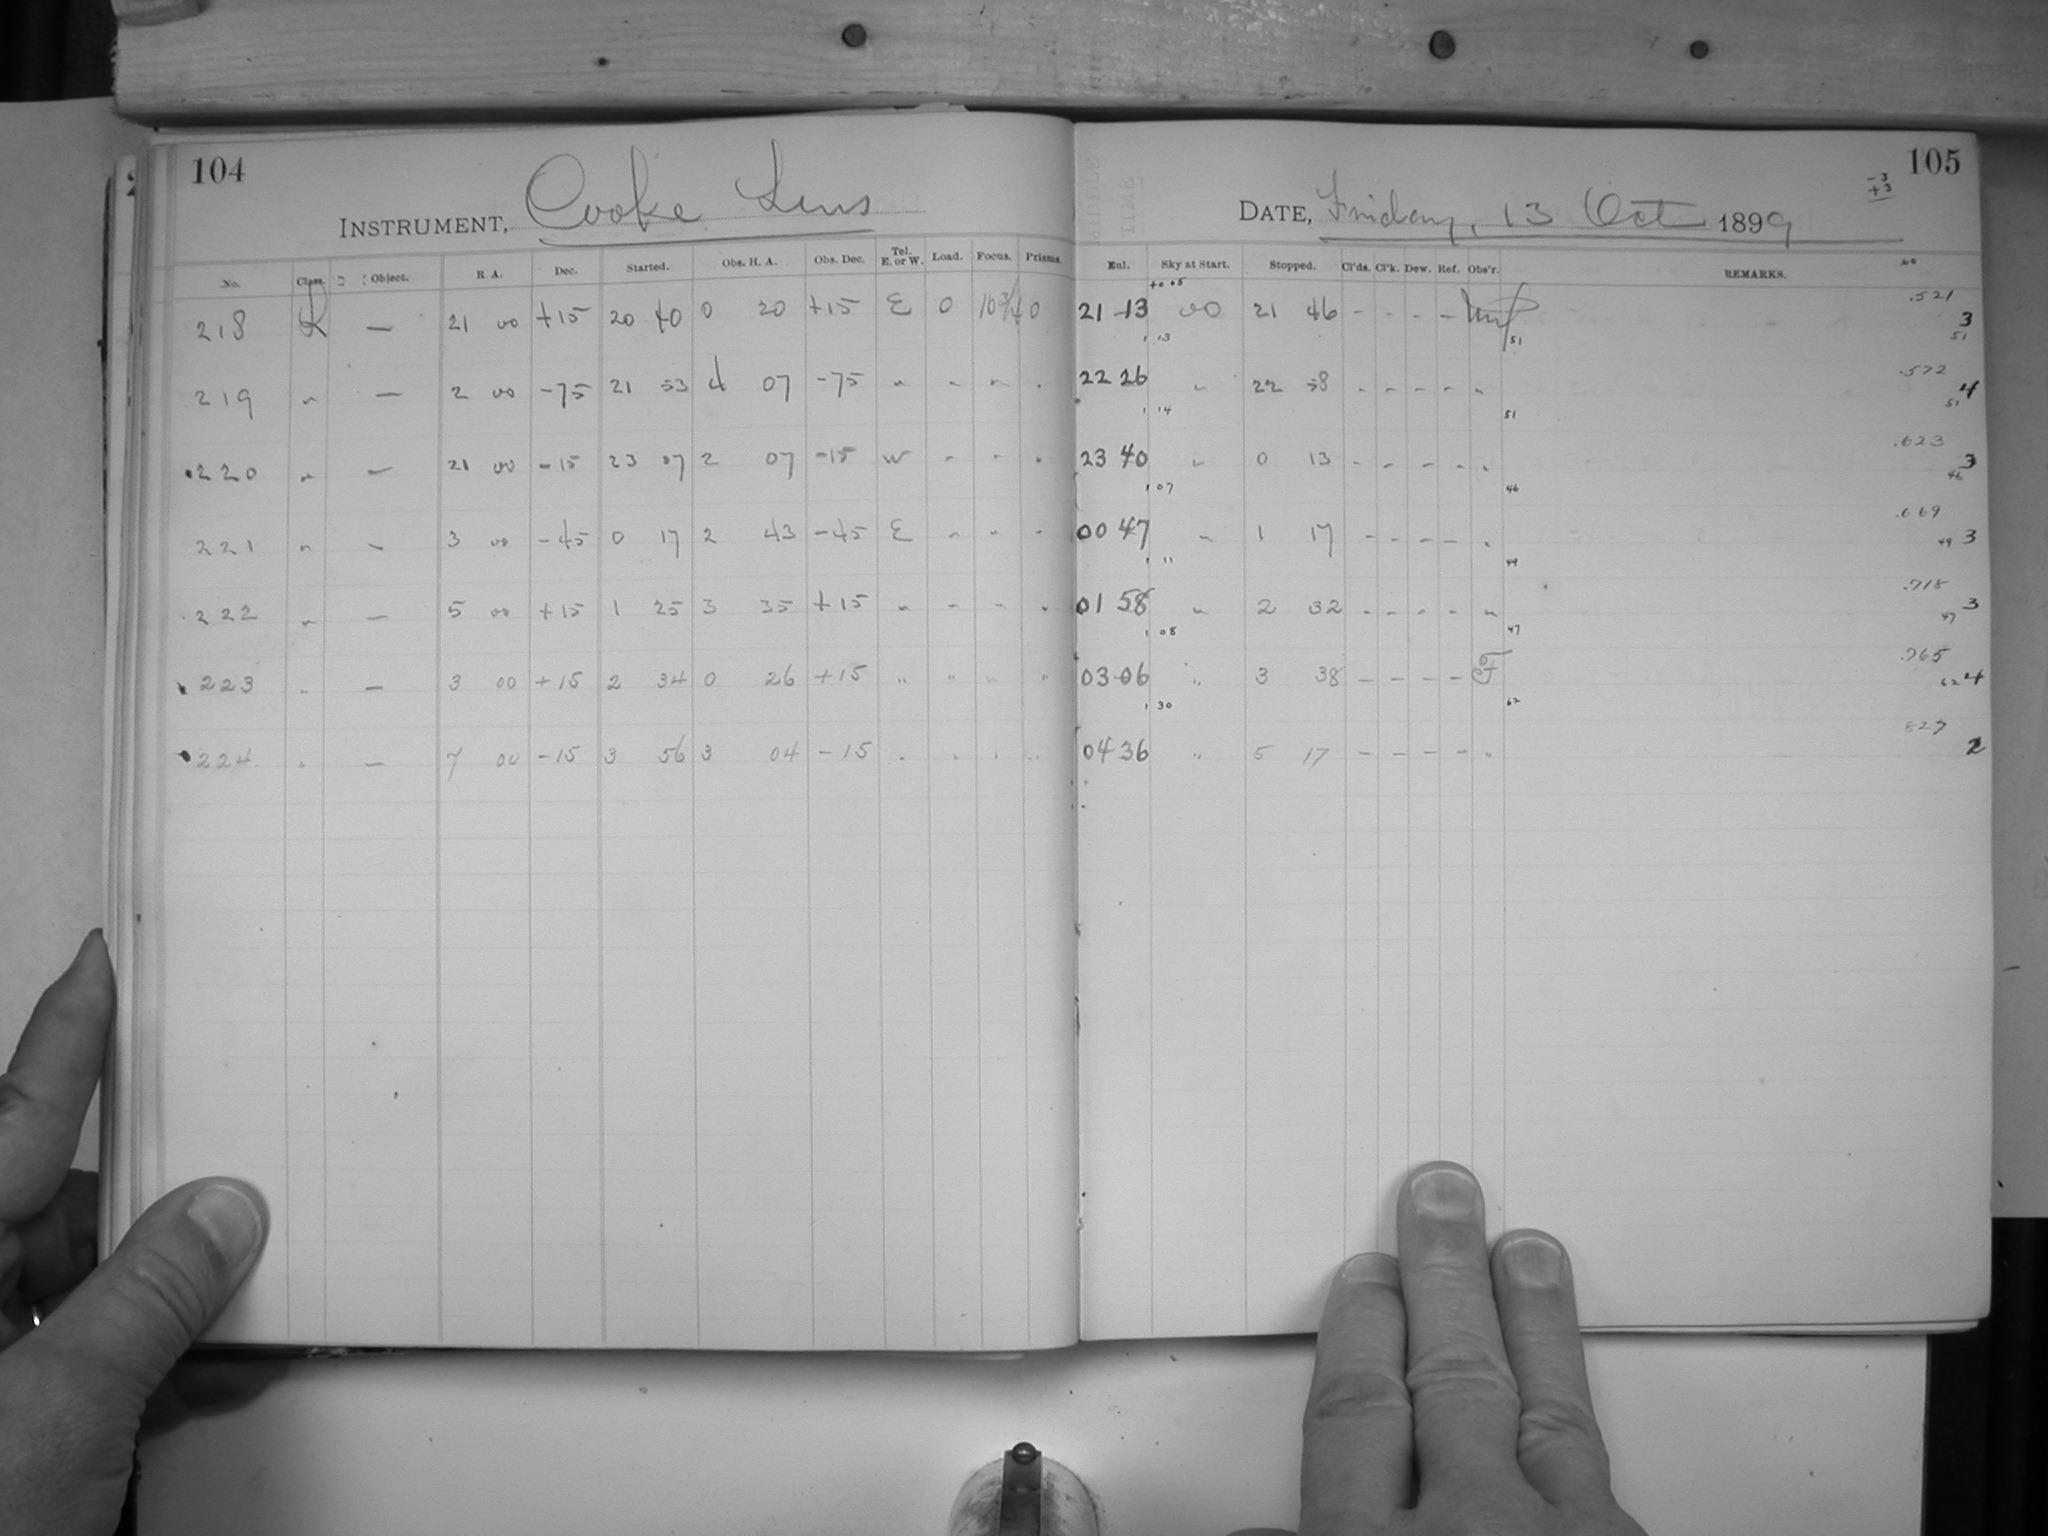 104
INSTRUMENT, Cooke Lens
No. Class. Object. R A. Dec. Started. Obs. H. A. Obs. Dec. Tel. E. or W. Load. Focus. Prisms.
218 K — 21 00 +15 20 40 0 20 +15 E 0 10¾ 0
219 " — 2 00 -75 21 53 4 07 -75 " " " "
220 " — 21 00 -15 23 07 2 07 -15 W " " "
221 " — 3 00 -45 0 17 2 43 -45 E " " "
222 " — 5 00 +15 1 25 3 35 +15 " " " "
223 " — 3 00 +15 2 34 0 26 +15 " " " "
224 " — 7 00 -15 3 56 3 04 -15 " " " "
105
-3
+3
DATE, Friday, 13 Oct 1899
Enl. Sky at Start. Stopped. Cl'ds. Cl'k. Dew. Ref. Obs'r. REMARKS.
+0 05
.521
21 13 00 21 46 - - - - 3
1 13 51 51
.572
22 26 " 22 58 - - - - " 4
1 14 51 51
.623
23 40 " 0 13 - - - - " 3
1 07 46 46
.669
00 47 " 1 17 - - - - " 3
1 11 49 49
.718
01 58 " 2 32 - - - - " 3
1 08 47 47
.765
03 06 " 3 38 - - - - 4
1 30 62 62
827
04 36 " 5 17 - - - - " 2